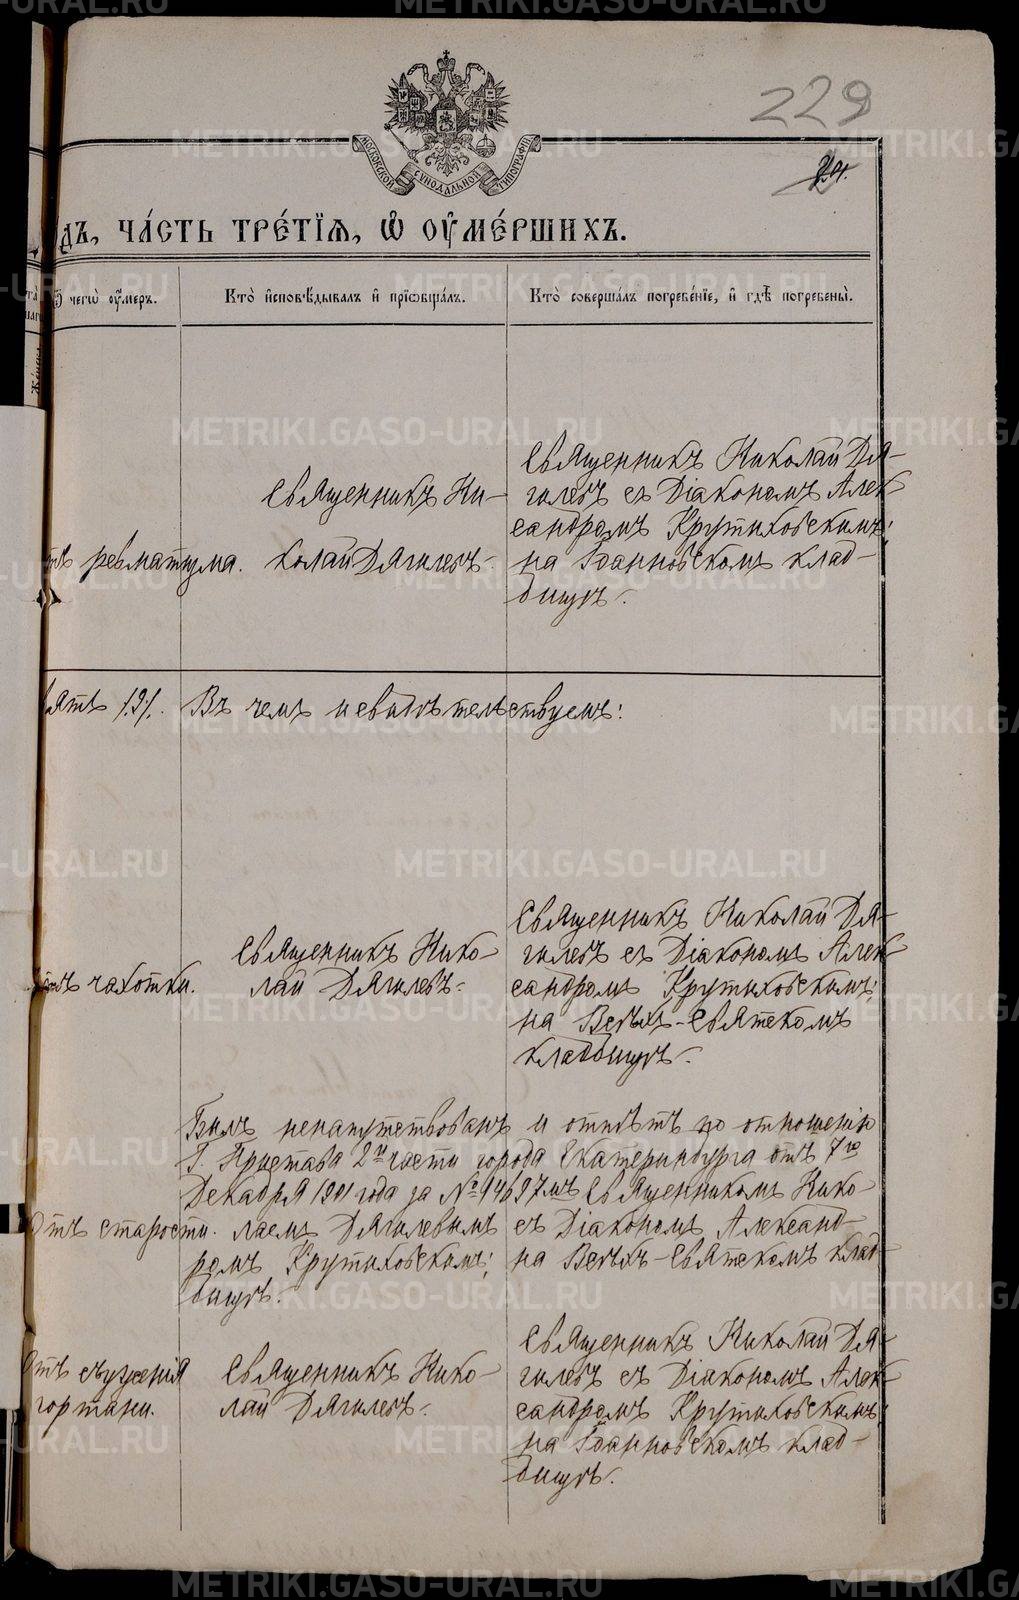 229
МОСКОВСКОЙ СѴНОДАЛЬНОЙ ТИПОГРАФІИ
дъ, ча́сть тре́тїѧ, ѽ оу҆ме́ршихъ.
Ѿ чегѡ̀ оу҆́меръ.
Кто̀ и҆сповѣ́дывалъ и҆ прїѡбща́лъ.
Кто̀ соверша́лъ погребе́нїе, и҆ гдѣ̀ погребены̀.
ревматизма.
Священникъ Ни-
колай Дягилевъ.
Священникъ Николай Дя-
гилевъ съ Діакономъ Алек
сандромъ Крутиховскимъ;
на Іоанновскомъ клад-
бищѣ.
Въ чемъ и свидѣтельствуемъ:
чахотки.
Священникъ Нико-
лай Дягилевъ.
Священникъ Николай Дя-
гилевъ съ Діакономъ Алек
сандромъ Крутиховскимъ;
на Всѣхъ-Святскомъ
кладбищѣ.
Отъ старости.
Былъ ненапутствованъ и отпѣтъ по отношенію
Г. Пристава 2й части города Екатеринбурга отъ 7го
Декабря 1901 года за № 14697мъ Священникомъ Нико-
лаемъ Дягилевымъ съ Діакономъ Александ-
ромъ Крутиховскимъ; на Всѣхъ-Святскомъ клад-
бищѣ.
Отъ съуженія
гортани.
Священникъ Нико-
лай Дягилевъ.
Священникъ Николай Дя-
гилевъ съ Діакономъ Алек
сандромъ Крутиховскимъ;
на Іоанновскомъ клад-
бищѣ.
METRIKI.GASO-URAL.RU